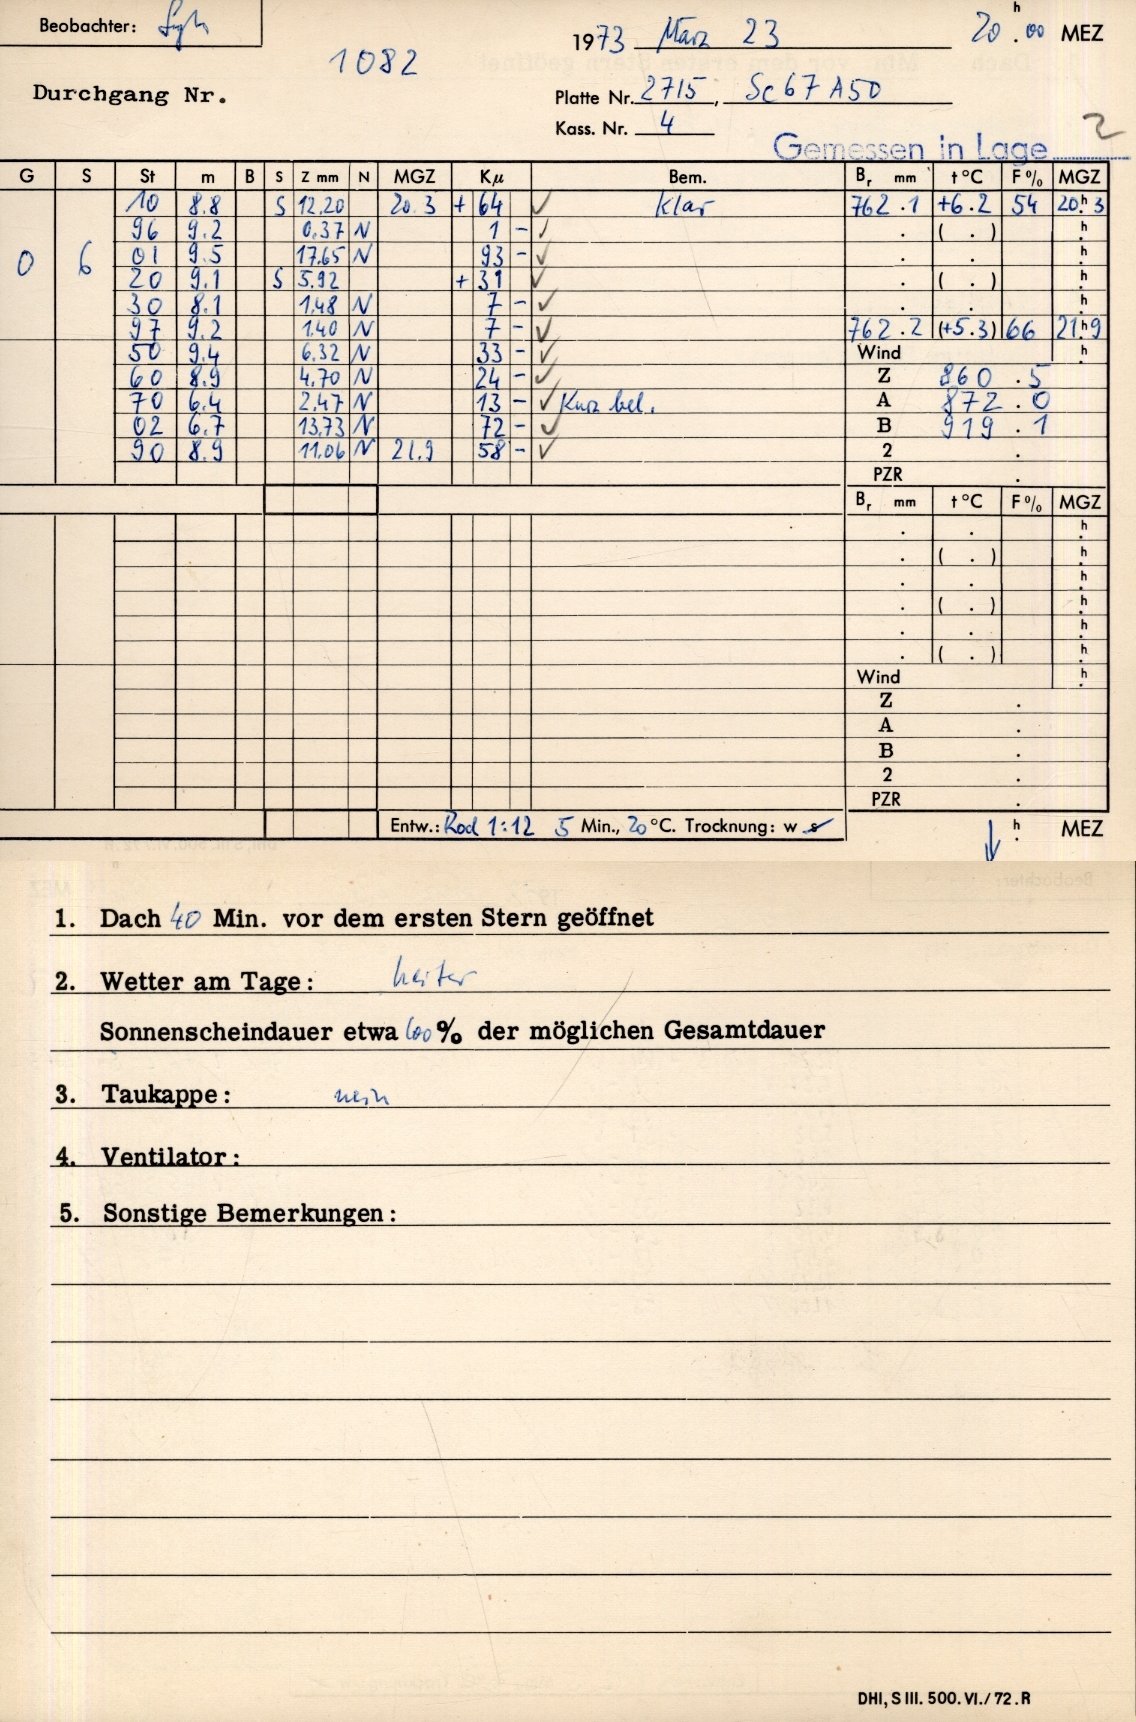 Beobachter:
1973 März 23 20.ʰ00 MEZ
1082
Durchgang Nr.
Platte Nr. 2715, Sc67A50
Kass. Nr. 4
Gemessen in Lage 2
G S St m B S Z mm N MGZ Kµ Bem. Bᵣ mm t°C F% MGZ
10 8.8 S 12.20 20.3 + 64 ✓ Klar 762.1 +6.2 54 20.ʰ3
96 9.2 0.37 N 1 - ✓ . ( . ) .ʰ
0 6 01 9.5 17.65 N 93 - ✓ . . .ʰ
20 9.1 S 5.92 + 31 ✓ . ( . ) .ʰ
30 8.1 1.48 N 7 - ✓ . . .ʰ
97 9.2 1.40 N 7 - ✓ 762.2 (+5.3) 66 21.ʰ9
50 9.4 6.32 N 33 - ✓ Wind .ʰ
60 8.9 4.70 N 24 - ✓ Z 860.5
70 6.4 2.47 N 13 - ✓ Kurz bel. A 872.0
02 6.7 13.73 N 72 - ✓ B 919.1
90 8.9 11.06 N 21.9 58 - ✓ 2 .
PZR .
Bᵣ mm t°C F% MGZ
. . .ʰ
. ( . ) .ʰ
. . .ʰ
. ( . ) .ʰ
. . .ʰ
. ( . ) .ʰ
Wind .ʰ
Z .
A .
B .
2 .
PZR .
Entw.: Rod 1:12 5 Min., 20°C. Trocknung: w s
↓ .ʰ MEZ
1. Dach 40 Min. vor dem ersten Stern geöffnet
2. Wetter am Tage: heiter
Sonnenscheindauer etwa 100% der möglichen Gesamtdauer
3. Taukappe: nein
4. Ventilator:
5. Sonstige Bemerkungen:
DHI, S III. 500. VI./72.R